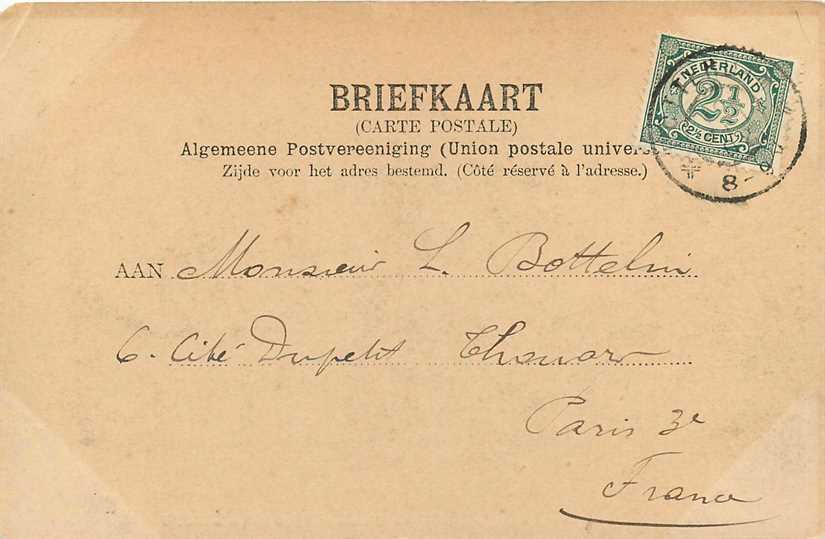 BRIEFKAART
(CARTE POSTALE)
Algemeene Postvereeniging (Union postale univers
Zijde voor het adres bestemd. (Côté réservé à l'adresse.)
NEDERLAND
2½
2½ CENT
8-9
AAN Monsieur L. Bottelin
6. Cité Dupetit Thouars
Paris 3e
France